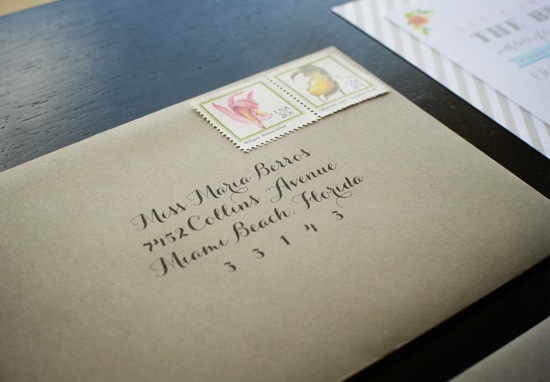 Miss Maria Berros
7452 Collins Avenue
Miami Beach, Florida
33143
USA
USA
THE B
FR